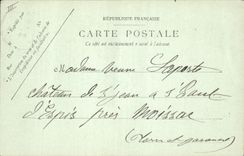 RÉPUBLIQUE FRANÇAISE
CARTE POSTALE
Ce côté est exclusivement réservé à l'adresse
Madame veuve Laporte
château de St Jean à St Paul
d'Espis près Moissac
(Tarn et garonne)